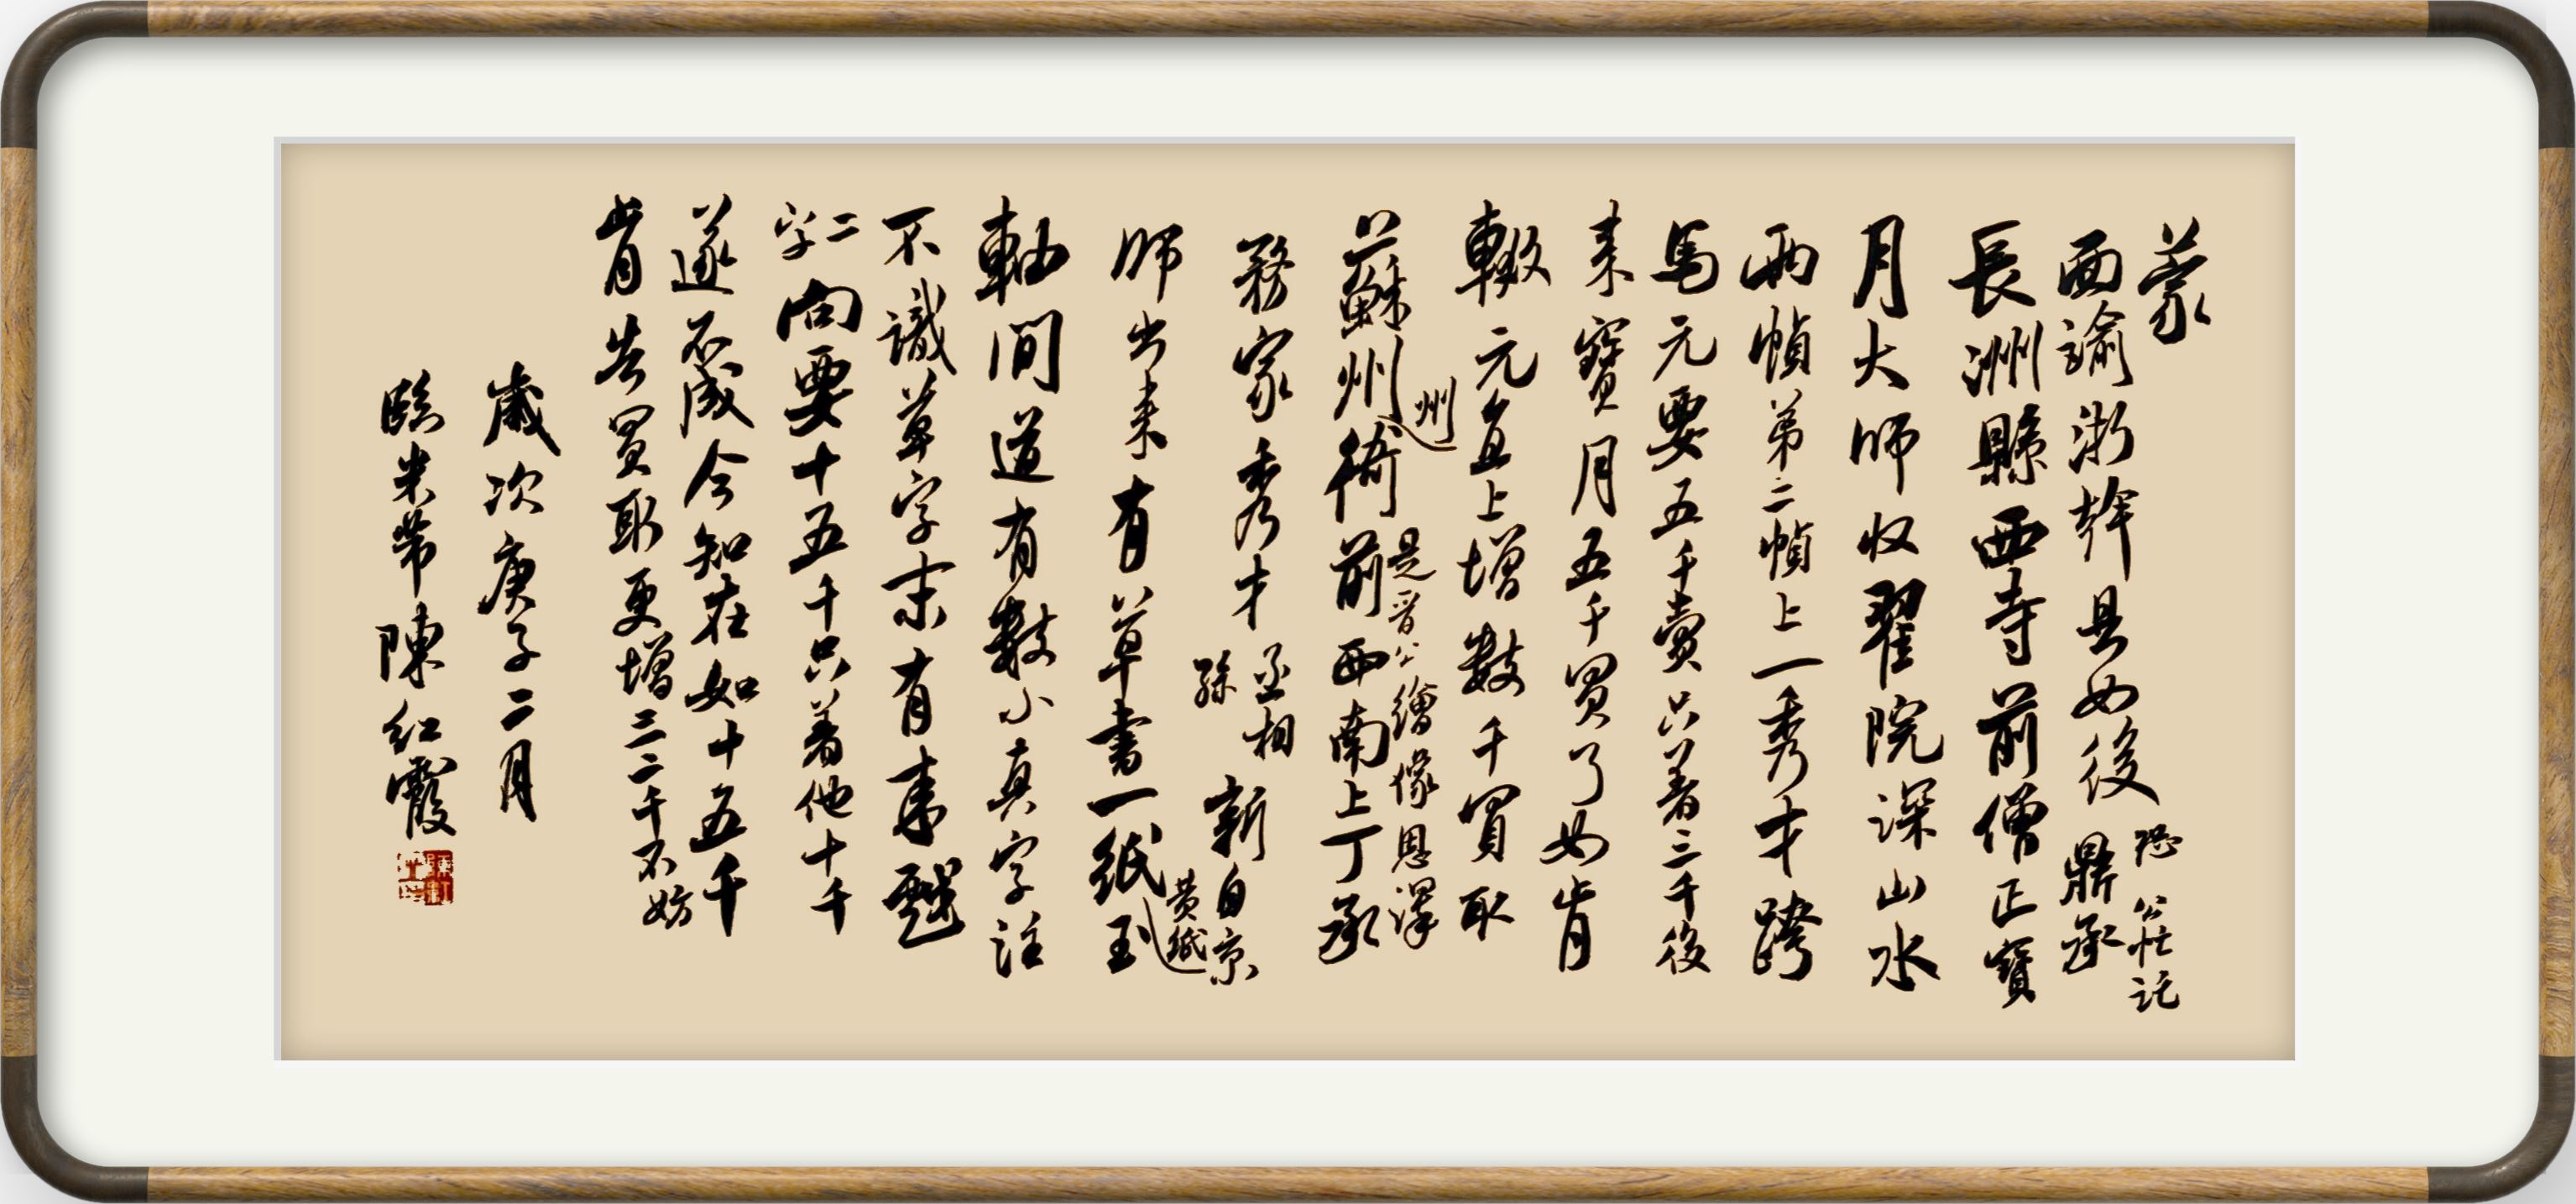 蒙
面諭浙幹具如後
恐公忙託
鼎承
長洲縣西寺前僧正寶
月大師收翟院深山水
兩幀弟二幀上一秀才跨
馬元要五千賣只着三千後
来寶月五千買了如肯
輟元直上增數千買取
州
蘇州衙前西南上丁承
是晋公繪像恩澤
務家秀才
丞相
孫
新自京
師出来有草書一紙
黄紙
玉
軸間道有數小真字注
不識草字末有来戲
二字
向要十五千只着他十千
遂不成今知在如十五千
肯告買取更增三二千不妨
歲次庚子二月
臨米芾陳紅霞